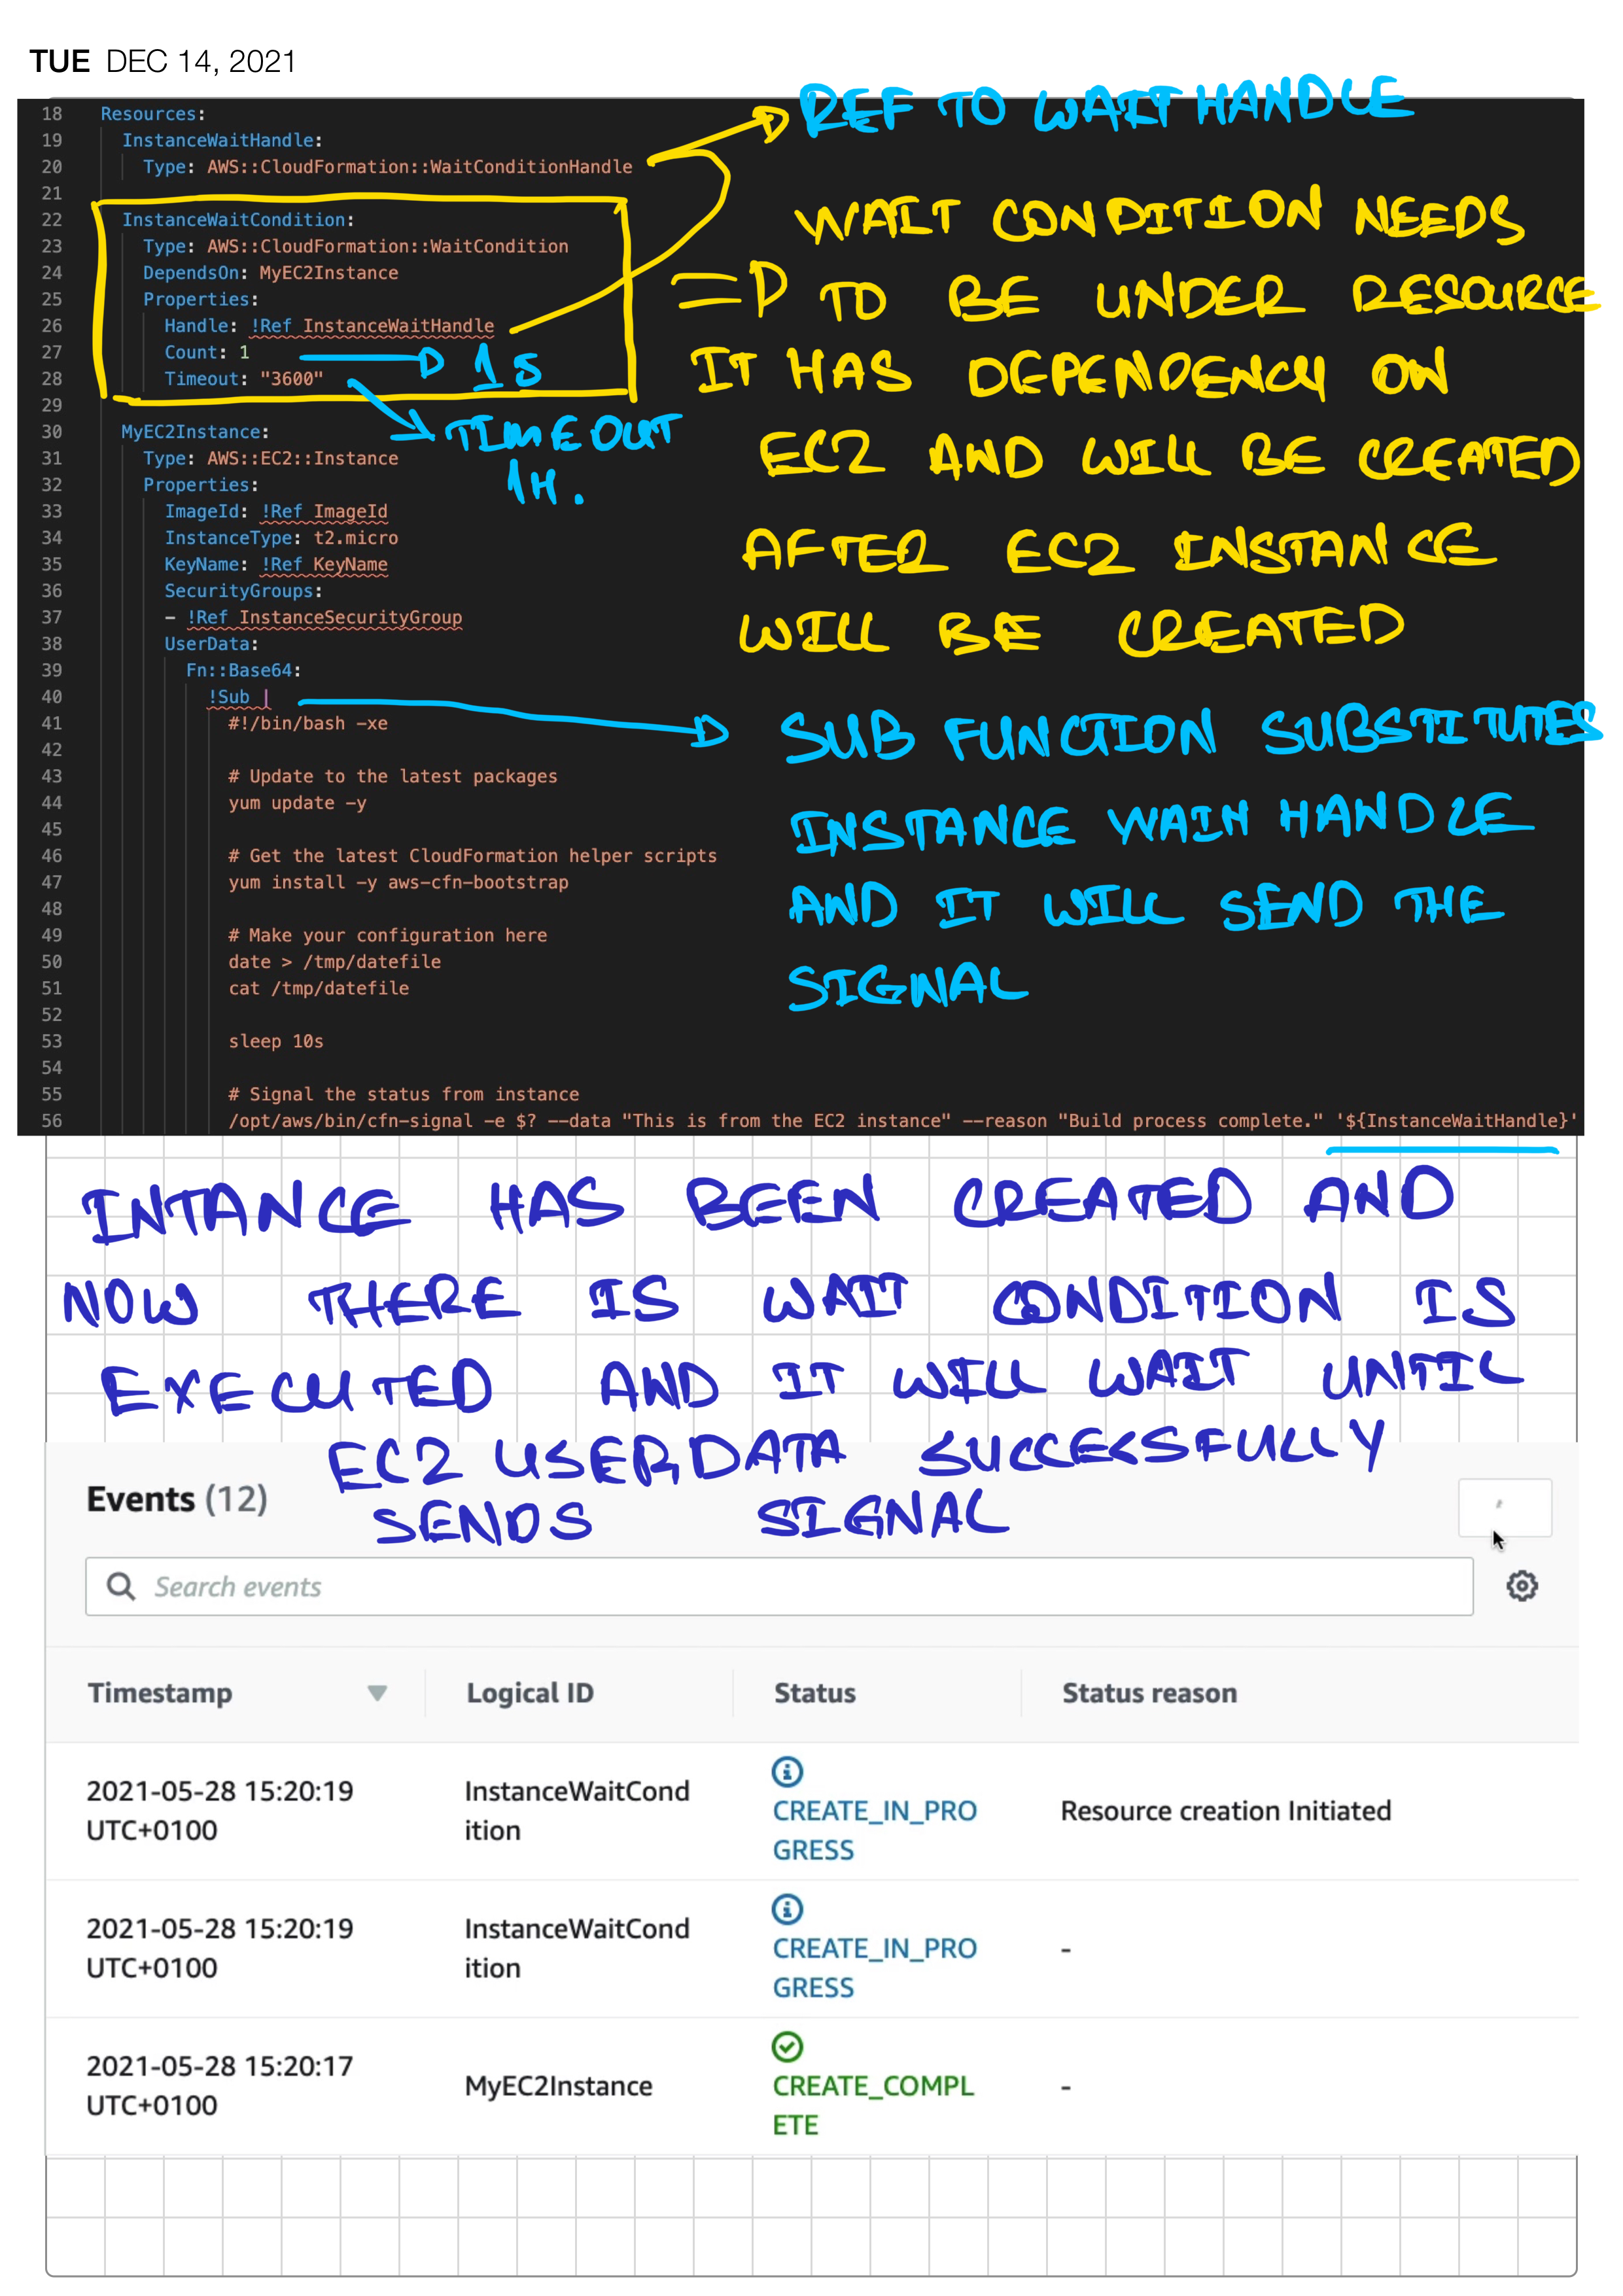 TUE DEC 14, 2021
18 Resources:
19 InstanceWaitHandle:
20 Type: AWS::CloudFormation::WaitConditionHandle
21
22 InstanceWaitCondition:
23 Type: AWS::CloudFormation::WaitCondition
24 DependsOn: MyEC2Instance
25 Properties:
26 Handle: !Ref InstanceWaitHandle
27 Count: 1
28 Timeout: "3600"
29
30 MyEC2Instance:
31 Type: AWS::EC2::Instance
32 Properties:
33 ImageId: !Ref ImageId
34 InstanceType: t2.micro
35 KeyName: !Ref KeyName
36 SecurityGroups:
37 - !Ref InstanceSecurityGroup
38 UserData:
39 Fn::Base64:
40 !Sub |
41 #!/bin/bash -xe
42
43 # Update to the latest packages
44 yum update -y
45
46 # Get the latest CloudFormation helper scripts
47 yum install -y aws-cfn-bootstrap
48
49 # Make your configuration here
50 date > /tmp/datefile
51 cat /tmp/datefile
52
53 sleep 10s
54
55 # Signal the status from instance
56 /opt/aws/bin/cfn-signal -e $? --data "This is from the EC2 instance" --reason "Build process complete." '${InstanceWaitHandle}'
REF TO WAIT HANDLE
WAIT CONDITION NEEDS
=> TO BE UNDER RESOURCE
IT HAS DEPENDENCY ON
EC2 AND WILL BE CREATED
AFTER EC2 INSTANCE
WILL BE CREATED
1S
TIMEOUT
1H.
SUB FUNCTION SUBSTITUTES
INSTANCE WAIN HANDLE
AND IT WILL SEND THE
SIGNAL
INTANCE HAS BEEN CREATED AND
NOW THERE IS WAIT CONDITION IS
EXECUTED AND IT WILL WAIT UNTIL
EC2 USERDATA SUCCESSFULLY
SENDS SIGNAL
Events (12)
Search events
Timestamp Logical ID Status Status reason
2021-05-28 15:20:19 InstanceWaitCond CREATE_IN_PRO Resource creation Initiated
UTC+0100 ition GRESS
2021-05-28 15:20:19 InstanceWaitCond CREATE_IN_PRO -
UTC+0100 ition GRESS
2021-05-28 15:20:17 MyEC2Instance CREATE_COMPL -
UTC+0100 ETE